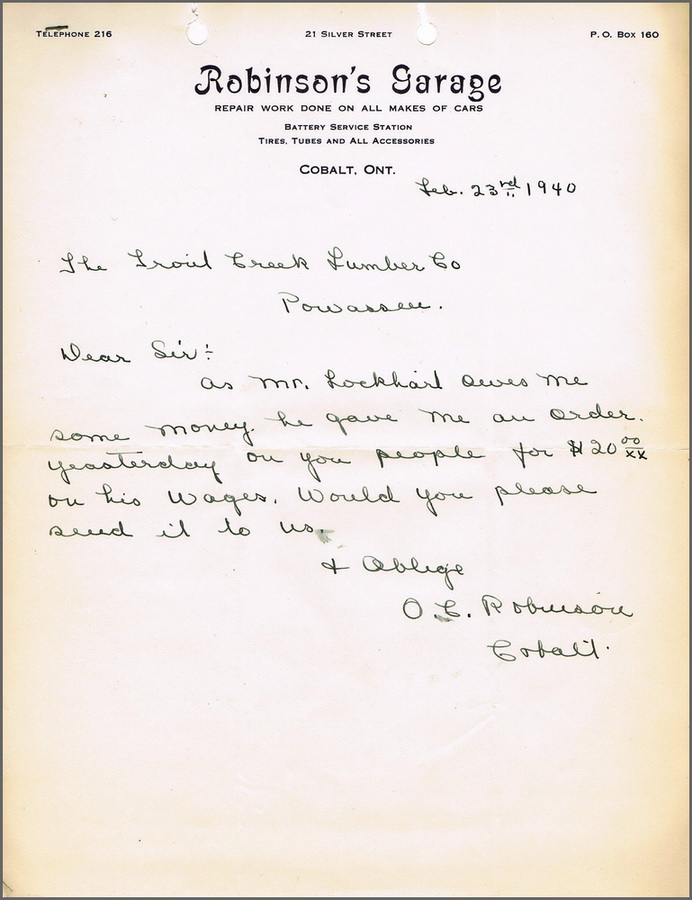 TELEPHONE 216 21 SILVER STREET P. O. BOX 160
Robinson's Garage
REPAIR WORK DONE ON ALL MAKES OF CARS
BATTERY SERVICE STATION
TIRES, TUBES AND ALL ACCESSORIES
COBALT, ONT.
Feb. 23rd 1940
The Trout Creek Lumber Co
Powassen.
Dear Sir:-
as Mr. Lockhart owes me
some money. he gave me an order.
yeasterday on you people for $20 00/xx
on his wages. Would you please
send it to us.
+ Oblige
O L. Robinson
Cobalt.